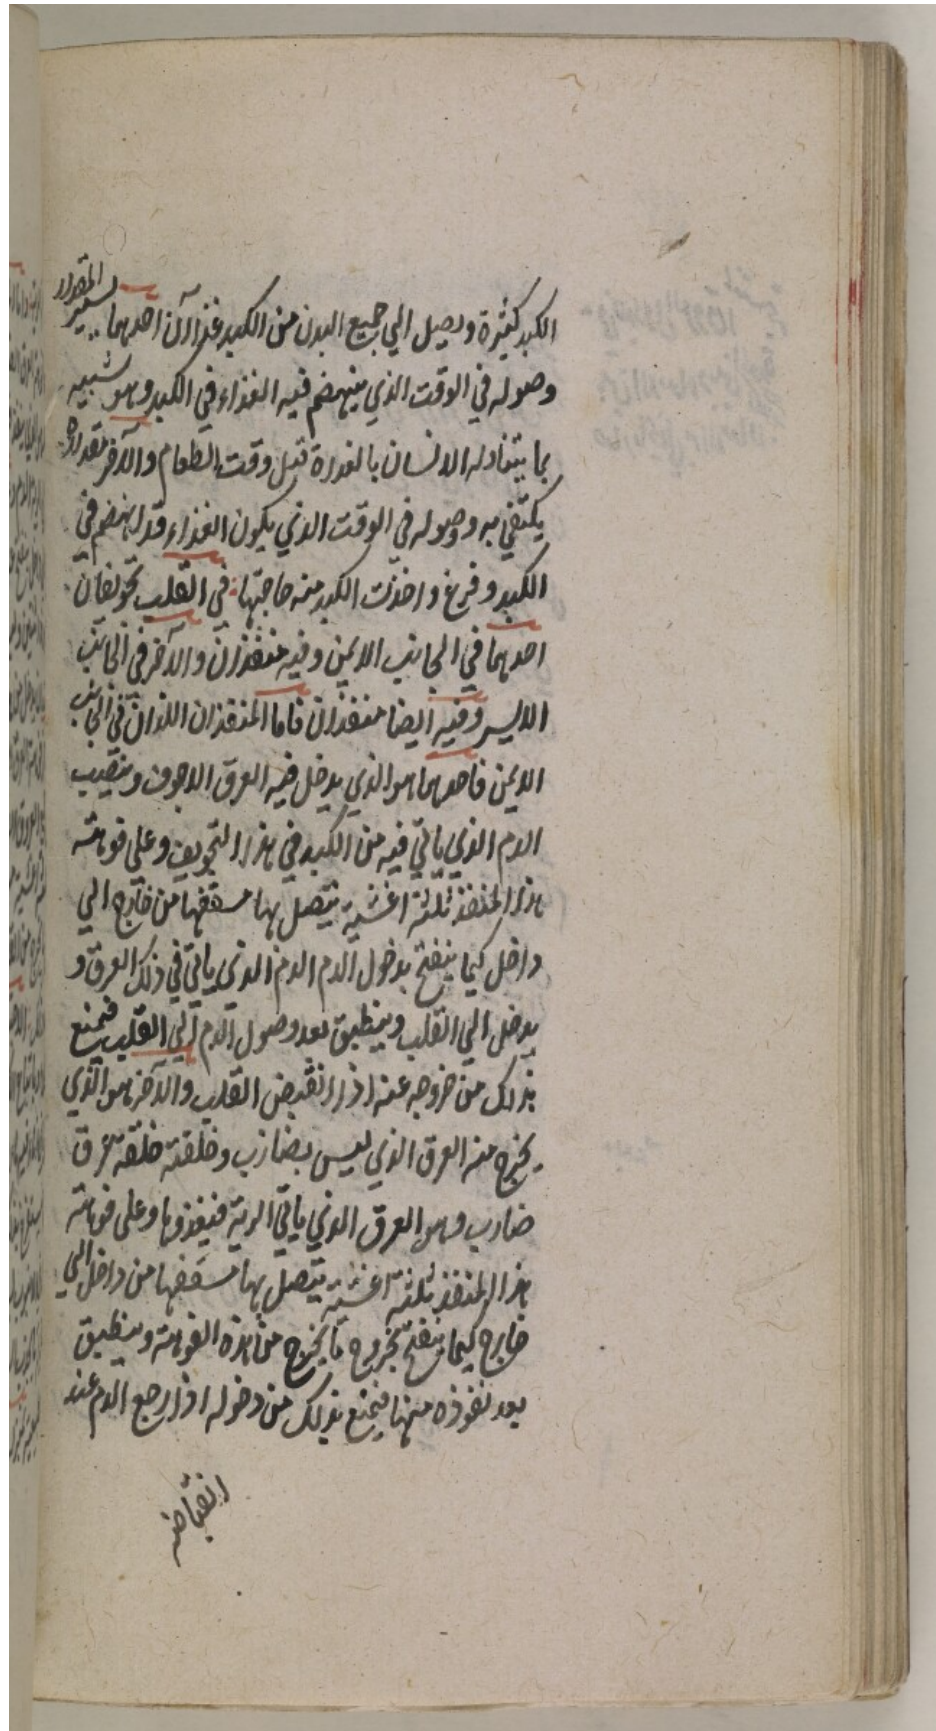 الكبد كثيرة ويصل الي جميع البدن من الكبد غذاآن احدهما يسير المقدار
وصوله في الوقت الذي ينهضم فيه الغذاء في الكبد وهو شبيه
بما يتناوله الانسان بالغداة قبل وقت الطعام والآخر مقداره
يكتفي به وصوله في الوقت الذي يكون الغذاء قد انهضم في
الكبد وفرغ واخذت الكبد منه حاجتها في القلب تجويفان
احدهما في الجانب الايمن وفيه منفذان والآخر في الجانب
الايسر وفيه ايضا منفذان فاما المنفذان اللذان في الجانب
الايمن فاحدهما هو الذي يدخل فيه العرق الاجوف وينصب
الدم الذي ياتي فيه من الكبد في هذا التجويف وعلى فوهته
هذا المنفذ ثلثة اغشية يتصل بها مسقفها من خارج الي
داخل كيما ينفتح بدخول الدم الدم الذي ياتي في ذلك العرق و
يدخل الي القلب وينطبق بعد وصول الدم الي القلب فيمنع
بذلك من خروجه عنه اذا انقبض القلب والآخر هو الذي
يخرج منه العرق الذي ليس بضارب وخلقته خلقة عرق
ضارب وهو العرق الذي ياتي الرية فيغذوها وعلى فوهته
هذا المنفذ ثلثة اغشية يتصل بها مسقفها من داخل الي
خارج كيما ينفتح بخروج ما يخرج من هذه الفوهته وينطبق
بعد نفوذه منها فيمنع بذلك من دخوله اذا رجع الدم عند
انقباضه